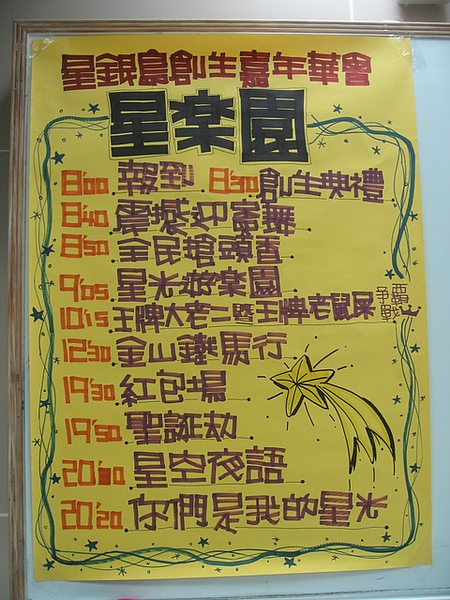 星銀島創生嘉年華會
星楽園
8:00 報到 8:30 創生典禮
8:40 震撼迎賓舞
8:50 全民搶頭香
9:05 星光遊楽園
10:15 王牌大老二暨王牌老鼠屎 爭霸戰
12:30 金山鐵馬行
19:30 紅包場
19:50 聖誕劫
20:00 星空夜語
20:20 你們是我的星光